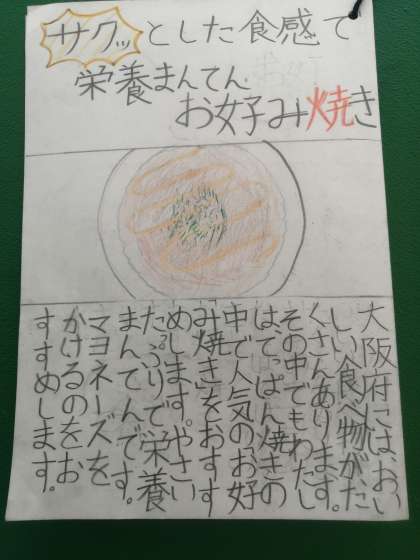 サクッとした食感で
栄養まんてん
お好み焼き
大阪府には、おい
しい食べ物がた
くさんあります。
その中でもわたし
はてっぱん焼きの
中で人気のお好
み焼きをおすす
めします。やさい
たっぷりで栄養
まんてんです。
マヨネーズを
かけるのをお
すすめします。